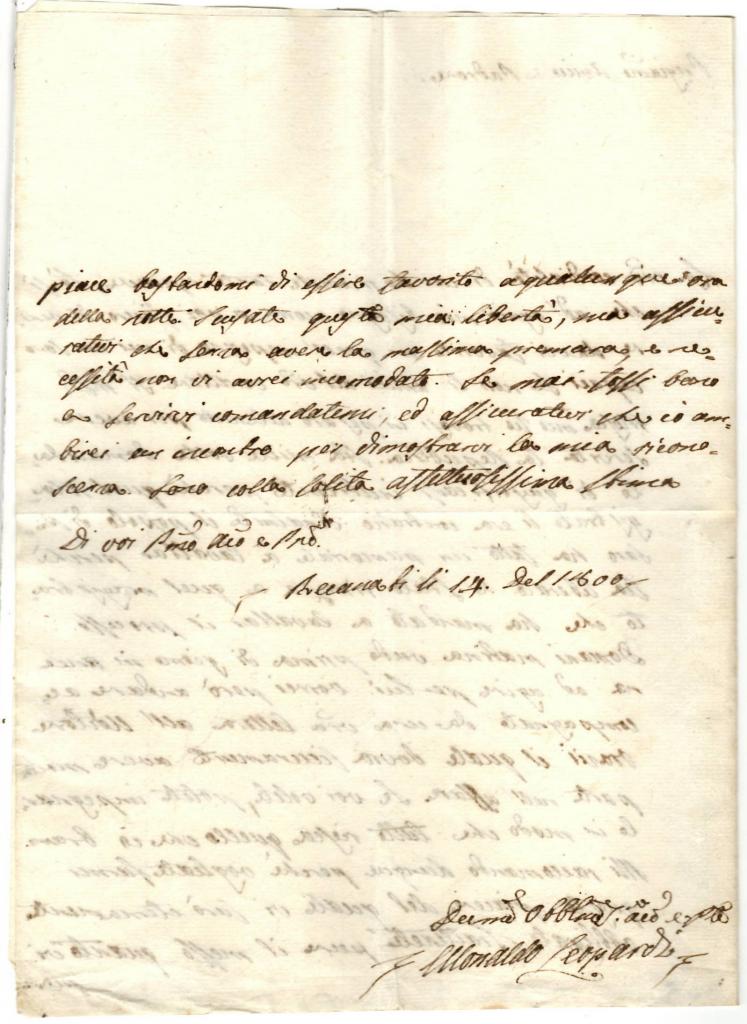 piace bastandomi di essere favorito a qualunque ora
della notte. Scusate questa mia libertà, ma assicu-
ratevi che senza avere la massima premura, e ne-
cessità non vi avrei incomodato. Se mai fossi buono
a servirvi comandatemi, ed assicuratevi che io am-
birei un incontro per dimostrarvi la mia ricono-
scenza. Sono colla solita affettuosissima stima
Di voi
Recanati li 14. Del 1800
Monaldo Leopardi